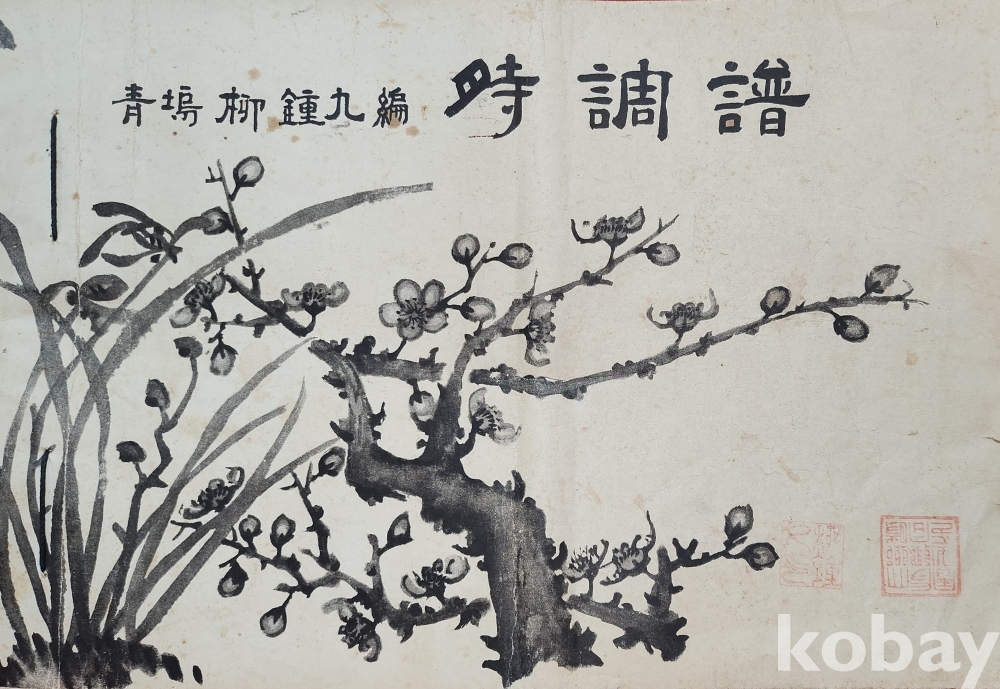 青塢 柳鍾九 編 時調譜
kobay